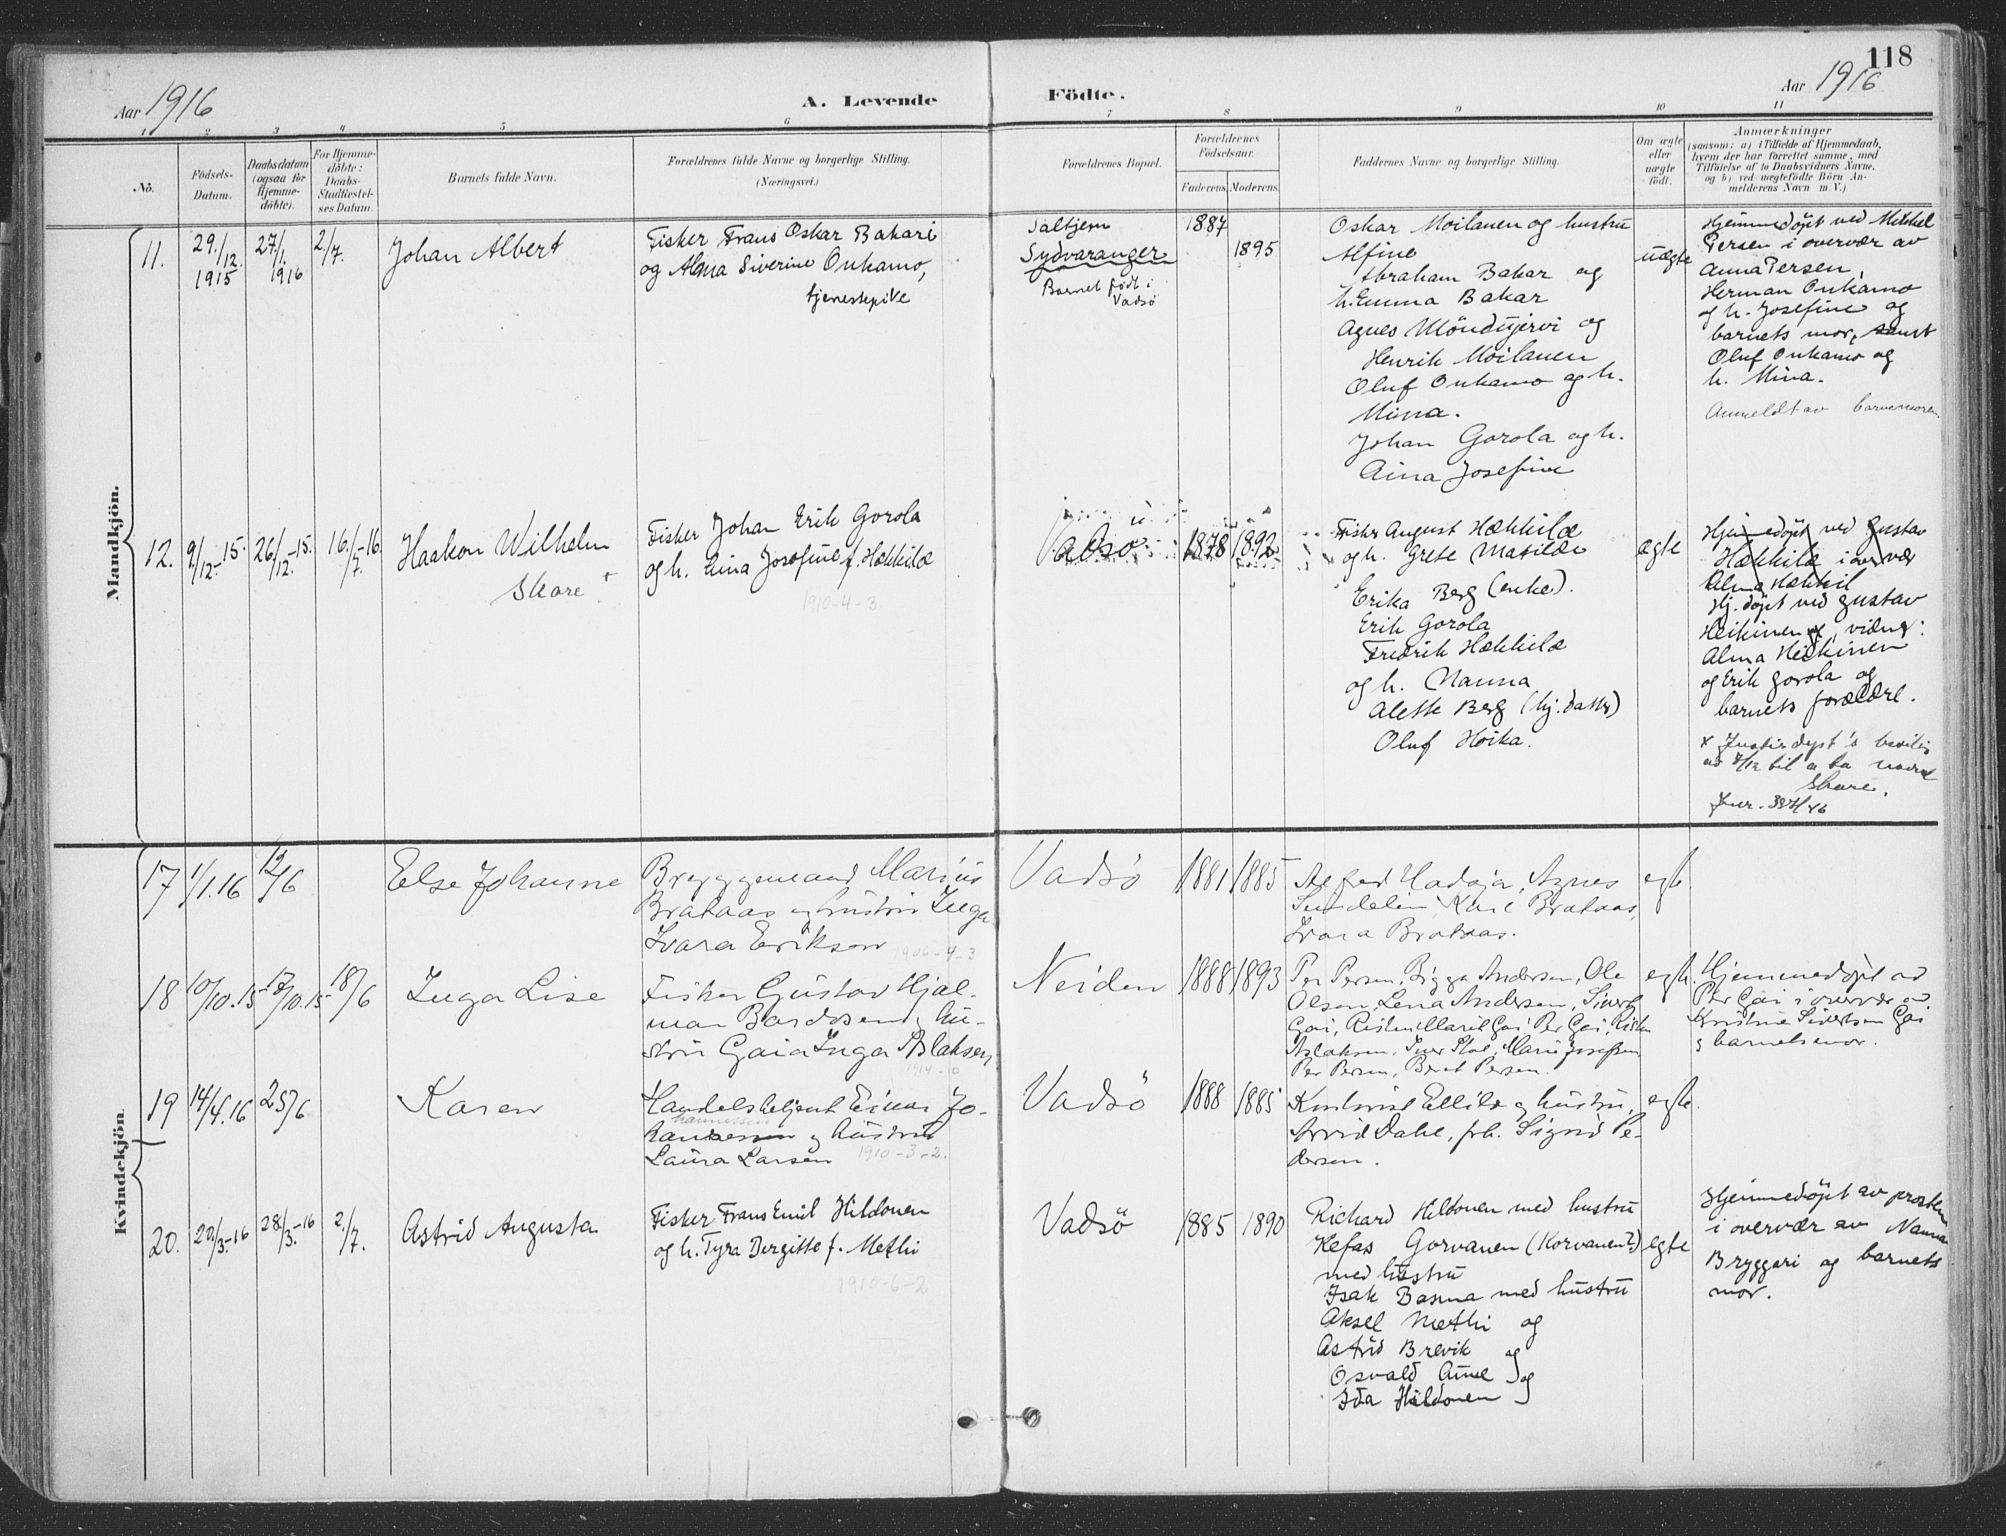 118
Aar 1916
A. Levende
Födte.
Aar 1916
1 2 3 4 5 6 7 8 9 10 11
No.
Födsels-
Datum.
Daabsdatum
(ogsaa for
Hjemme-
döbte).
For Hjemme-
döbte:
Daabs-
Stadfæstel-
ses Datum.
Barnets fulde Navn.
Forældrenes fulde Navne og borgerlige Stilling.
(Næringsvei.)
Forældrenes Bopæl.
Forældrenes
Födselsaar.
Faderens. Moderens.
Faddernes Navne og borgerlige Stilling.
Om ægte
eller
uægte
födt.
Anmærkninger
(saasom: a) i Tilfælde af Hjemmedaab,
hvem der har forrettet samme, med
Tilföielse af to Daabsvidners Navne,
og b) ved uægtefödte Börn An-
melderens Navn m. V.)
Mandkjön.
11.
29./12.
1915
27/1.
1916
2/7.
Johan Albert
Fisker Frans Oskar Bakari
og Alma Siverine Onkamo,
tjenestepike
Jakobselv
Sydvaranger
Barnet født i
Vadsø
1887
1895
Oskar Moilanen og hustru
Alfine
Abraham Bakar og
h. Emma Bakar
Agnes Mondujervi og
Henrik Moilanen
Oluf Onkamo og h.
Mina.
Johan Gorola og h.
Aina Josefine
uægte
Hjemmedøpt ved Mikkel
Persen i overvær av
Anna Persen,
Herman Onkamo
og h. Josefine og
barnets mor, samt
Oluf Onkamo og
h. Mina.
Anmeldt av barnemoren.
12.
9/12.-15.
26/12.-15.
16./7.-16.
Haakon Wilhelm
Skare +
Fisker Johan Erik Gorola
og h. Aina Josefine f. Hækkilæ
1910-4-3.
Vadsø
1878
1892
Fisker August Hækkilæ
og h. Grete Matilde
Erika Berg (enke).
Erik Gorola
Fredrik Hækkilæ
og h. Nanna
Alette Berg (hj. datter)
Oluf Hoika.
ægte
Hjemmedøpt ved Gustav
Hækkilæ i overvær
Alma Hækkil
Hj. døpt ved Gustav
Heikinen, vidner:
Alma Heikinen
og Erik Gorola og
barnets forældre.
x Justisdept's bevilg
av 7/12 til a ta navnet
Skare.
Jnr. 397/46
Kvindekjön.
17
1/1.16
12/6
Else Johanne
Bryggemand Marius
Brataas og hustru Inga
Ivara Eriksen
1906-4-3
Vadsø
1881
1885
Alfred Hadoja, Agnes
Sundelin, Karl Brataas,
Ivara Brataas.
egte
18
10/10.15
17/10.15
18/6
Inga Lise
Fisker Gustav Hjal-
mar Bardosen, hu-
stru Gaia Inga Aslaksen
1914-
Neiden
1888
1893
Per Persen, Bigga Andersen, Ole
Olsen, Lena Andersen, Sivert
Gai, Risten Marit Gai, Per Gai, Risten
Aslaksen, Iver Stol, Marie Josefsen
Per Persen, Berit Persen.
egte
Hjemmedøpt av
Per Gai i overvær av
Kristine Sivertsen Gai
og barnets mor.
19
14/4.16
25/6
Karen
Handelsbetjent Einar Jo-
hannessen
hannesen og hustru
Laura Larsen
1910-3-2.
Vadsø
1888
1885
Kontorist Ellilä og hustru,
Arvid Dahl, frk. Sigrid Pe-
dersen.
egte.
20.
20/3.-16
28/3.-16
2./7.
Astrid Augusta
Fisker Frans Emil Hildonen
og h. Tyra Bergitte f. Methi
1910-6-2
Vadsø
1885
1890
Richard Hildonen med hustru
Kefas Gorvanen (Korvanen?)
med hustru
Isak Basma med hustru
Aksel Methi og
Astrid Brevik og
Osvald Aune og
Ida Hildonen
egte
Hjemmedøpt av prosten
i overvær av Nanna
Bryggari og barnets
mor.